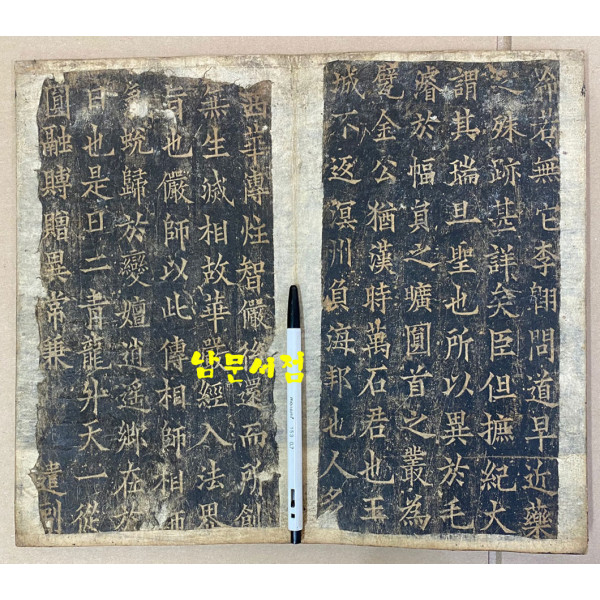 若無它李翶問道早近藥
之殊跡甚詳矣臣但摭紀大
謂其瑞旦聖也所以異於毛
濬於幅員之曠圓首之叢為
甓金公猶漢時萬石君也玉
城不返溟州負海邦也人多
西華傳炷智儼後還而所創
無生滅相故華嚴經入法界
旨也儼師以此傳相師相
蛻歸於變嬗逍遙鄉在於
日也是日二青龍升天一從
圓融賻贈異常兼 遣
남문서점